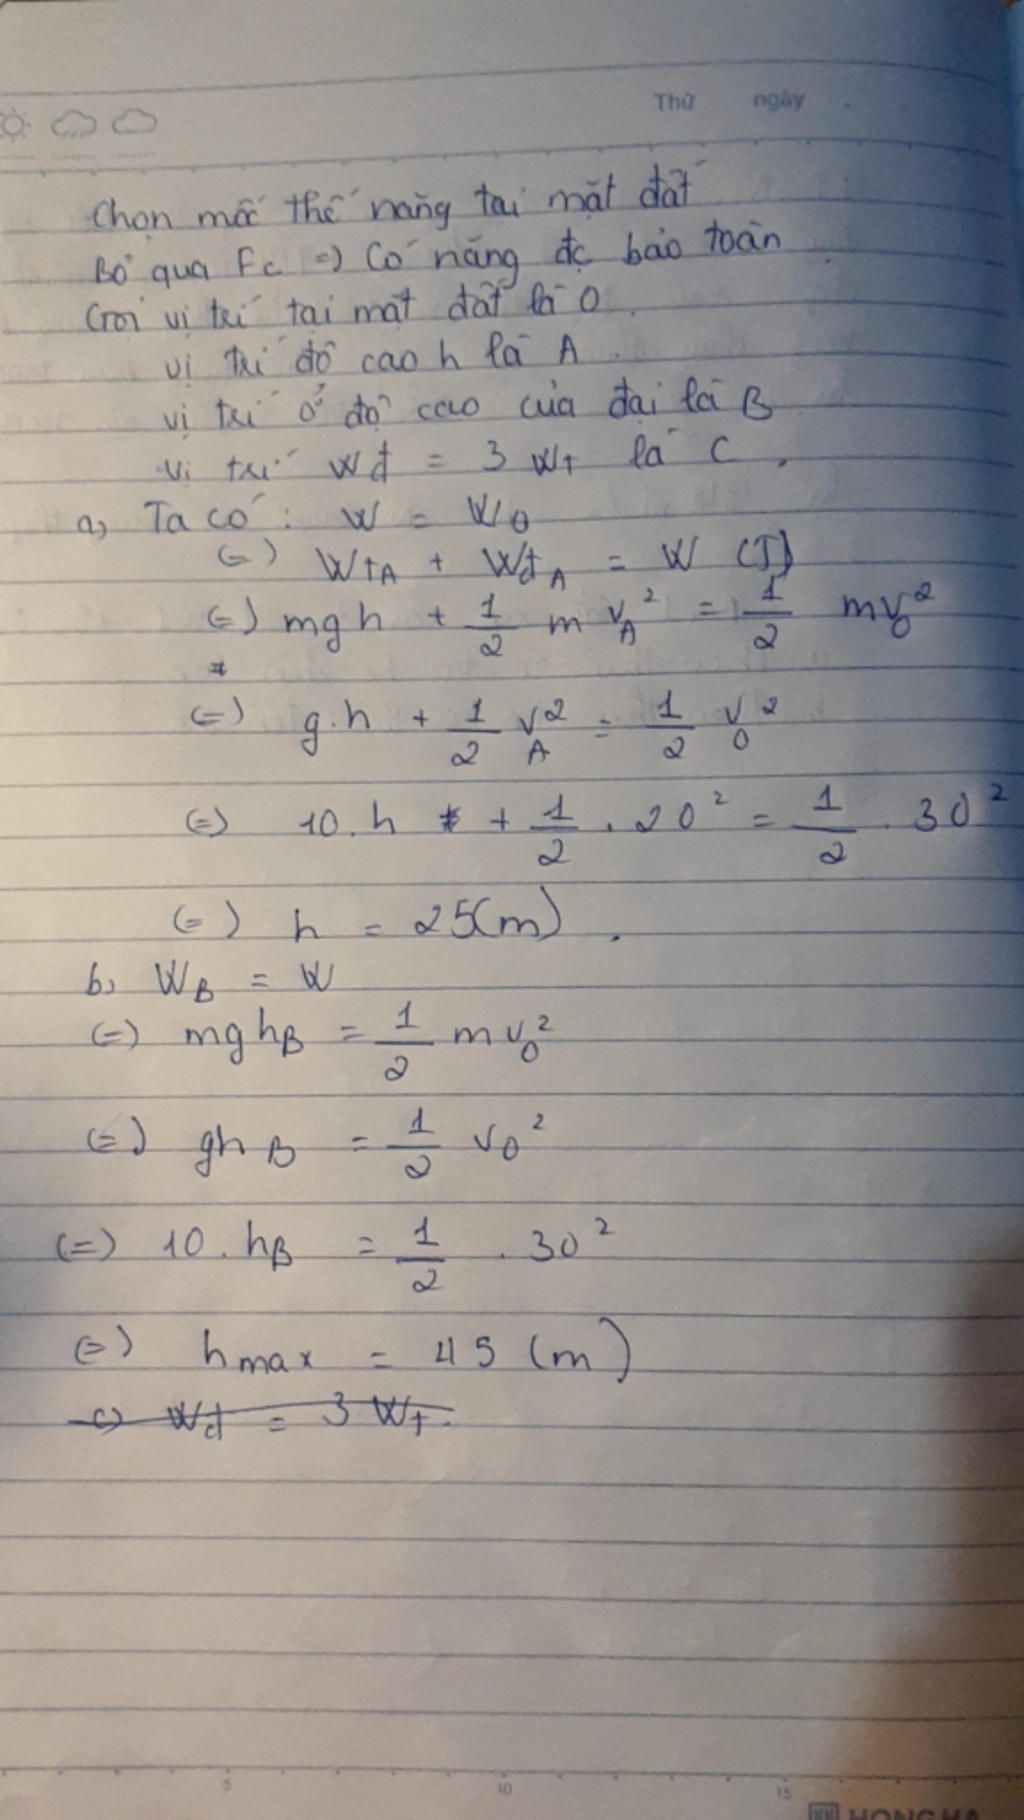 Thứ ngày
Chọn mốc thế năng tại mặt đất
Bỏ qua Fc =) Cơ năng đc bảo toàn
Gọi vị trí tại mặt đất là O
vị trí độ cao h là A.
vị trí ở độ cao cực đại là B
vị trí Wđ = 3 Wt là C.
a, Ta có: W = W0
(=) WtA + WđA = W (J)
(=) mgh + 1/2 m vA² = 1/2 mv0²
(=) g.h + 1/2 vA² = 1/2 v0²
(=) 10.h + 1/2 . 20² = 1/2 . 30²
(=) h = 25(m).
b, WB = W
(=) mghB = 1/2 mv0²
(=) ghB = 1/2 v0²
(=) 10.hB = 1/2 . 30²
(=) hmax = 45 (m)
c) Wđ = 3 Wt.
5 10 15
HONG HA